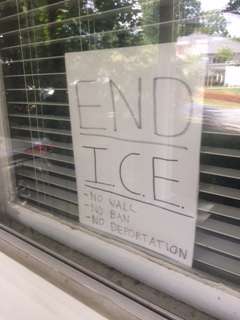 END
I.C.E.
-NO WALL
-NO BAN
-NO DEPORTATION